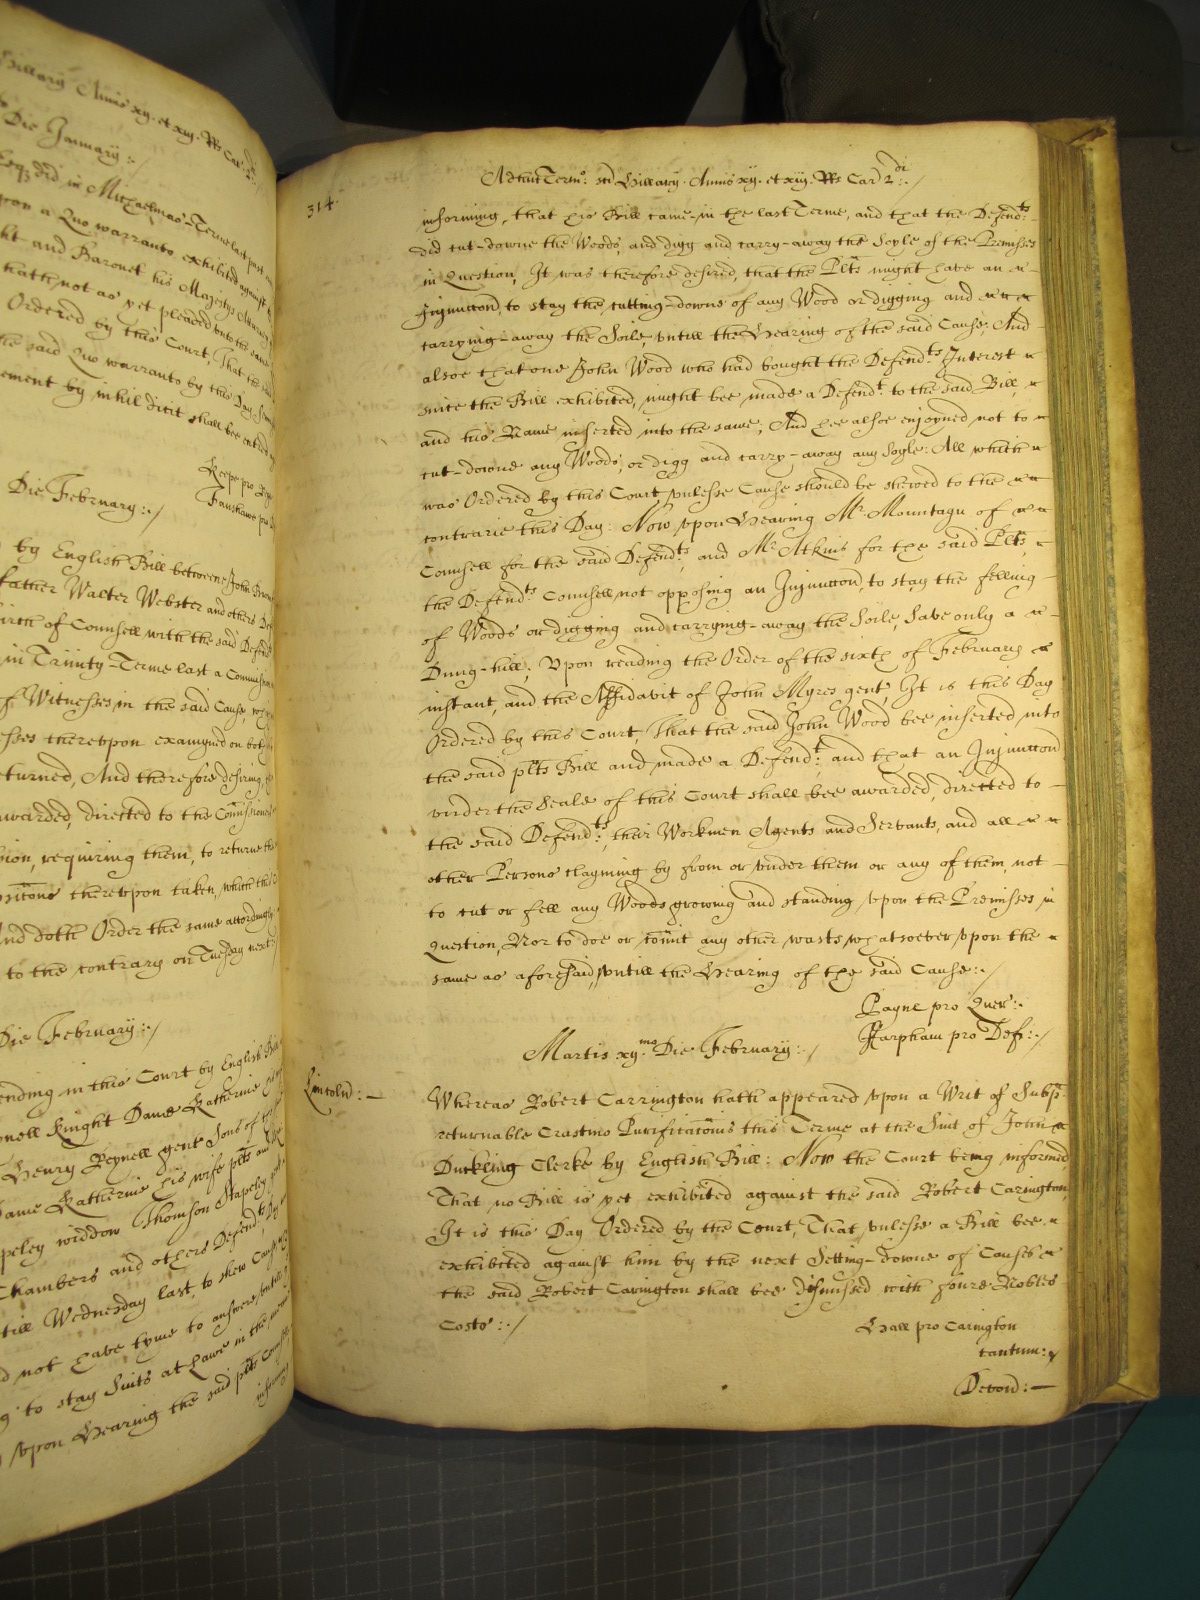 Hillary Annis xij. et xiij. Rs Car: 2.di :/
Die January :/
Esq did in Michaelmas-Terme last past
upon a Quo warranto exhibited against
ht and Baronet his Majestys Attorney
hath not as yet pleaded unto the same
Ordered by this Court, That the
the said Quo warranto by this Day
ement by nihil dicit shall bee entred
Keepe pro
Fanshawe pro
Die February :/
by English Bill betweene John
father Walter Webster and others
irth of Counsell with the said Defend
in Trinity-Terme last a Commission
of Witnesses in the said Cause,
esses thereupon examyned on both
eturned, And therefore desiring,
awarded, directed to the Comissioners
sion, requiring them, to returne the
ositions thereupon taken, which this
And doth Order the same accordingly
to the contrary on Tuesday next
Die February :/
ending in this Court by English Bill
nell Knight Dame Katherine his
Henry Reynell gent Sons of the
Dame Katherine his wife plts and
peley widdow Thomson Stapeley gent
Chambers and others Defend.ts Day
till Wednesday last, to shew Cause
d not have tyme to answere, untill
g to stay Suits at Lawe in the meane
upon Hearing the said plts Counsell
informing
314.
Adhuc Term.o Sci Hillary. Annis xij. et xiij. Rs Car 2.di :/
informing, that his Bill came-in the last Terme, and that the Defend.ts
did cut-downe the Woods, and digg and carry-away the Soyle of the Premisses
in Question, It was therefore desired, that the Plts might have an
Injunccon, to stay the cutting-downe of any Wood or digging and
carrying-away the Soile, untill the Hearing of the said Cause; And
alsoe that one John Wood who had bought the Defend.ts Interest
since the Bill exhibited, might bee made a Defend.t to the said Bill,
and his Name inserted into the same; And hee alsoe enjoyned not to
cut-downe any Woods, or digg and carry-away any Soyle: All which
was Ordered by this Court unlesse Cause should be shewed to the
contrarie this Day: Now upon Hearing Mr. Mountagu of
Counsell for the said Defend.ts, and Mr. Atkins for the said Plts,
the Defend.ts Counsell not opposing an Injunccon, to stay the felling
of Woods or digging and carrying-away the Soile, Save only a
Dung-hill; Upon reading the Order of the sixth of February
instant, and the Affidavit of John Myres gent, It is this Day
Ordered by this Court, That the said John Wood bee inserted into
the said plts Bill and made a Defend.t; and that an Injunccon
under the Seale of this Court shall bee awarded, directed to
the said Defend.ts, their Workmen Agents and Servants, and all
other Persons clayming by from or under them or any of them, not
to cut or fell any Woods growing and standing upon the Premisses in
Question, Nor to doe or comit any other wasts whatsoever upon the
same as aforesaid, untill the Hearing of the said Cause :/
Payne pro Quer :
Harpham pro Def :/
Martis xij.mo Die February :/
Lincoln : —
Whereas Robert Carrington hath appeared upon a Writ of Subp.
returnable Crastino Purificaconis this Terme at the Suit of John
Duckling Clerke by English Bill: Now the Court being informed
That no Bill is yet exhibited against the said Robert Carington,
It is this Day Ordered by the Court, That unlesse a Bill bee
exhibited against him by the next Setting-downe of Causes
the said Robert Carington shall bee dismissed with foure Nobles
Costs :/
Hall pro Carington
tantum :
Devon : —